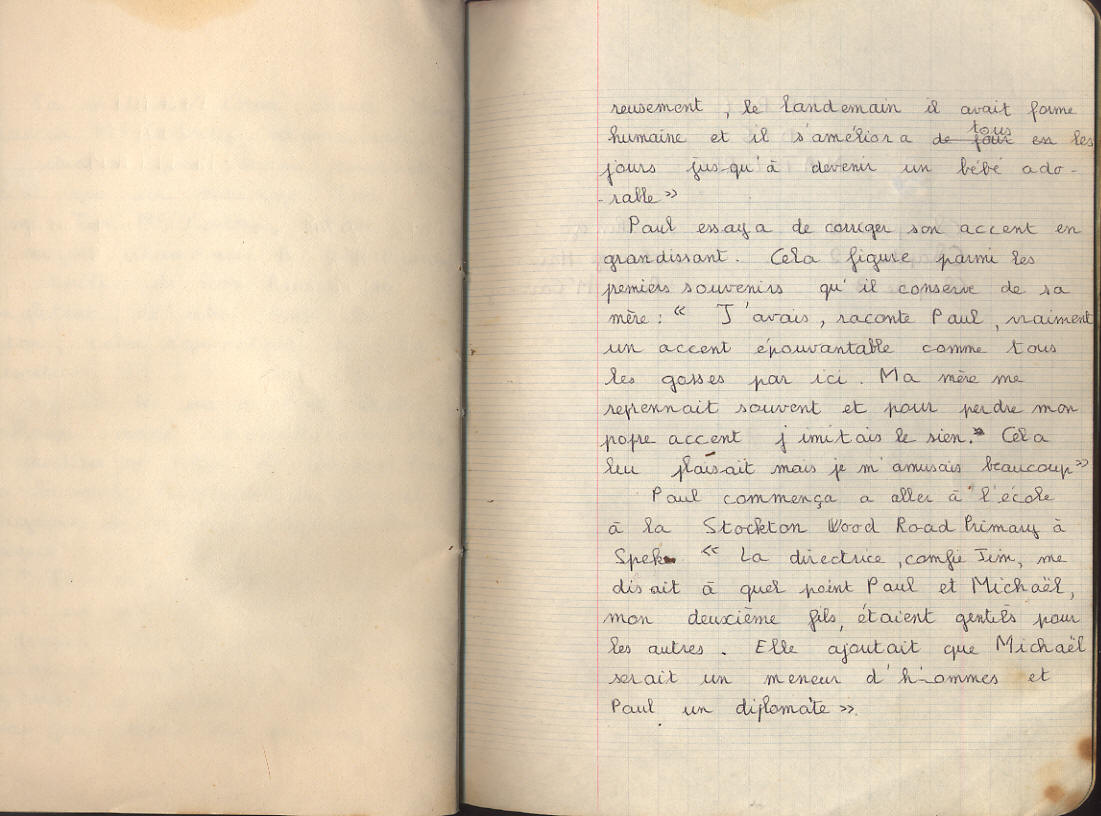 reusement, le landemain il avait forme
humaine et il s'améliora de jour tous en les
jours jusqu'à devenir un bébé ado-
-rable »
Paul essaya de corriger son accent en
grandissant. Cela figure parmi les
premiers souvenirs qu'il conserve de sa
mère : « J'avais, raconte Paul, vraiment
un accent épouvantable comme tous
les gosses par ici. Ma mère me
reprennait souvent et pour perdre mon
popre accent j'imitais le sien. » Cela
leu plaisait mais je m'amusais beaucoup »
Paul commença a aller à l'école
à la Stockton Wood Road Primary à
Spek. « La directrice, confie Jim, me
disait à quel point Paul et Michaël,
mon deuxième fils, étaient gentils pour
les autres. Elle ajoutait que Michaël
serait un meneur d'hommes et
Paul un diplomate ».